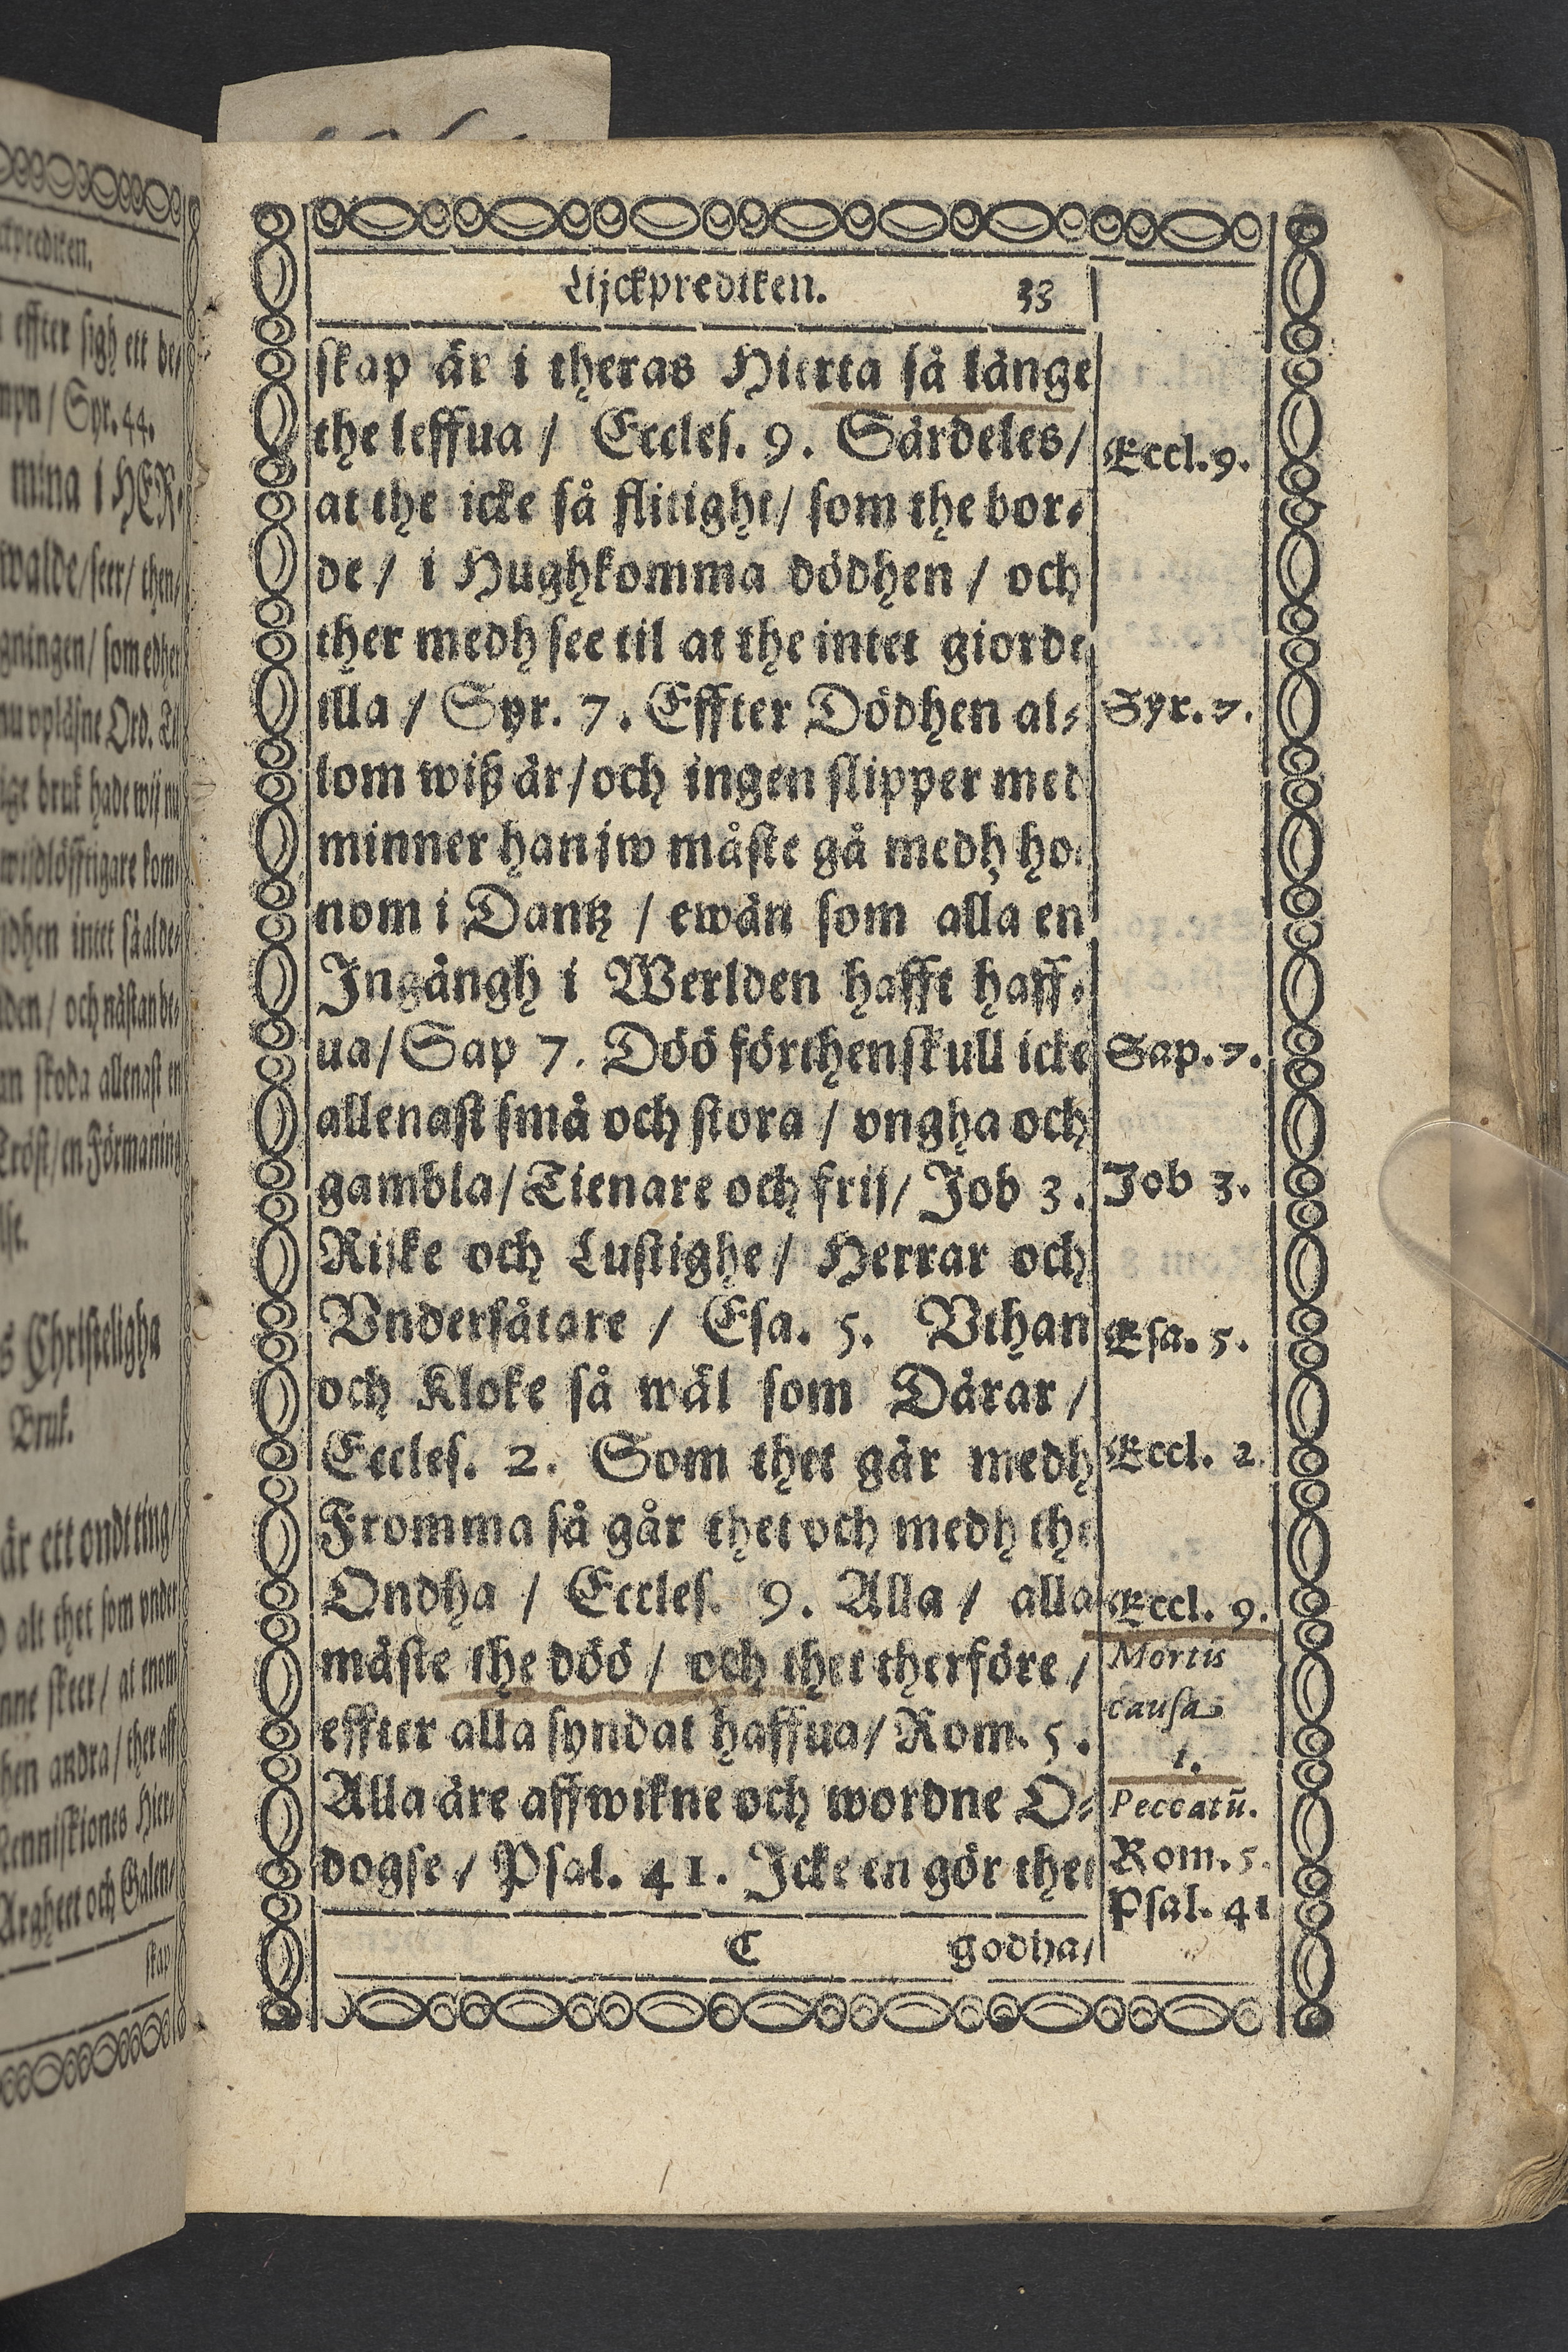 ckprediken.
effter sigh ett be/
mpn / Syr. 44.
mina i HER⸗
walde / seer / then/
gningen / som edher
nu vpläsne Ord. Til
ige bruk hade wij nu
wijdlöfftigare kom⸗
ijdhen intet så alde⸗
lden / och nästan be⸗
an skoda allenast en
Tröst / en Förmaning
lse.
s Christeligha
Bruk.
är ett ondt ting /
alt thet som vnder
nne skeer / at enom
hen andra / ther aff
Menniskiones Hier⸗
Argheet och Galen/
skap
Lijckprediken. 33
skap är i theras Hierta så länge
the leffua / Eccles. 9. Särdeles /
Eccl. 9.
at the icke så flitight / som the bor⸗
de / i Hughkomma dödhen / och
ther medh see til at the intet giorde
illa / Syr. 7. Effter Dödhen al⸗
Syr. 7.
lom wiß är / och ingen slipper med
minner han jw måste gå medh ho⸗
nom i Dantz / ewän som alla en
Ingångh i Werlden hafft haff⸗
ua / Sap 7. Döö förthenskull icke
Sap. 7.
allenast små och stora / vngha och
gambla / Tienare och frij / Job 3.
Job 3.
Rijke och Lustighe / Herrar och
Vndersåtare / Esa. 5. Vthan
Esa. 5.
och Kloke så wäl som Dårar /
Eccles. 2. Som thet går medh
Eccl. 2.
Fromma så går thet och medh the
Ondha / Eccles. 9. Alla / alla
Eccl. 9.
måste the döö / och thet therföre /
Mortis
causa
effter alla syndat haffua / Rom. 5.
1.
Alla äre affwikne och wordne O⸗
Peccatũ.
dogse / Psal. 41. Icke en gör thet
Rom. 5.
Psal. 41
C godha /